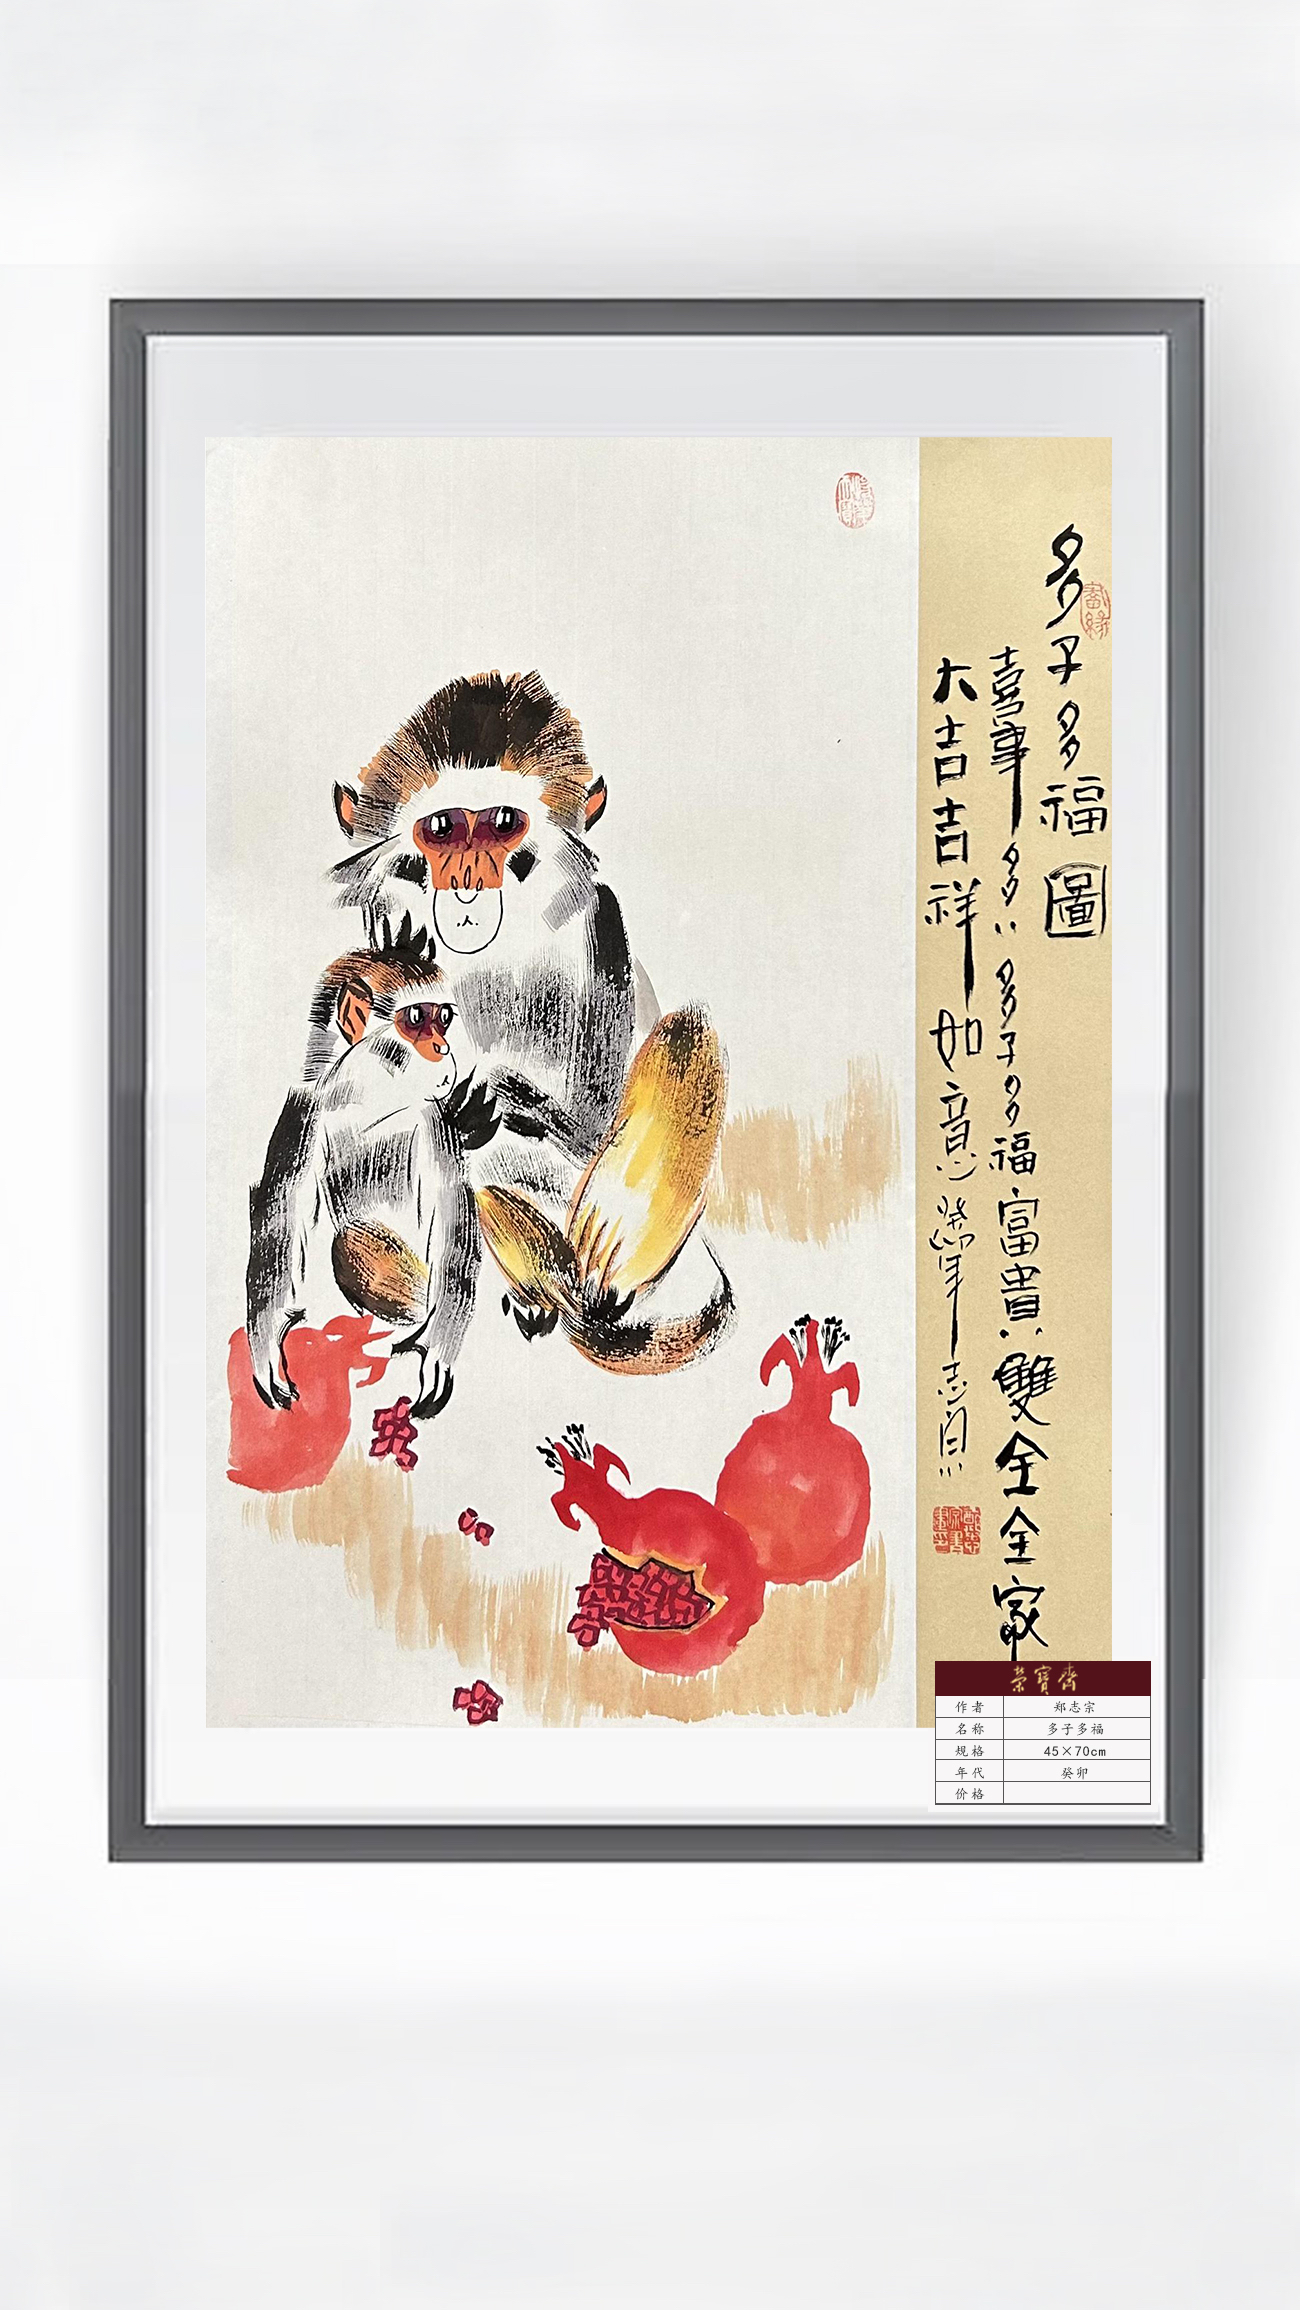 多子多福圖
喜事多〻多子多福富貴〻雙全全家
大吉吉祥如意癸卯年志
榮寶齋
作者 郑志宗
名称 多子多福
规格 45×70cm
年代 癸卯
价格